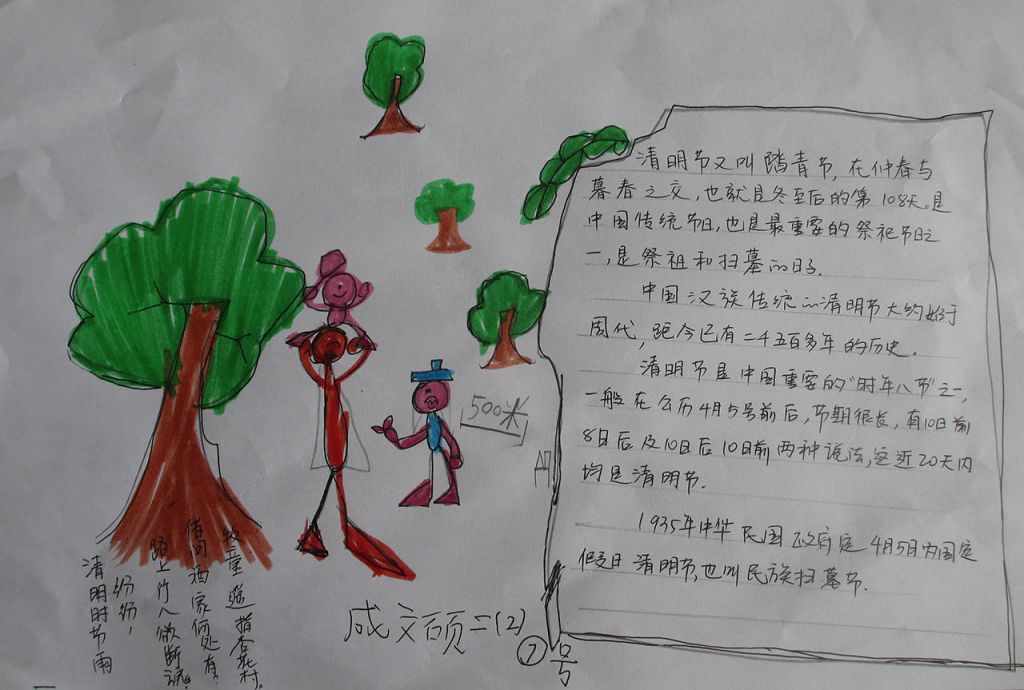 清明节又叫踏青节,在仲春与
暮春之交,也就是冬至后的第108天。是
中国传统节日,也是最重要的祭祀节日之
一,是祭祖和扫墓的日子.
中国汉族传统的清明节大约始于
周代,距今已有二千五百多年的历史.
清明节是中国重要的“时年八节”之一,
一般在公历4月5号前后,节期很长,有10日前
8日后及10日后10日前两种说法,这近20天内
均是清明节.
1935年中华民国政府定4月5日为国定
假日清明节,也叫民族扫墓节.
500米
清明时节雨
纷纷,
路上行人欲断魂。
借问酒家何处有?
牧童遥指杏花村.
成文硕二(2)
⑦号